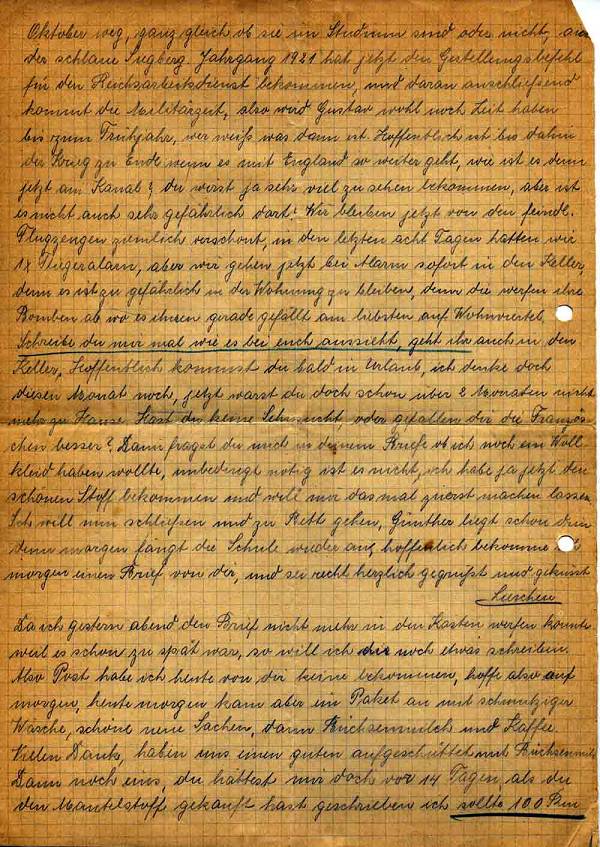 Oktober weg, ganz gleich ob sie im Studium sind oder nicht, auch
der schlaue Siegberg. Jahrgang 1921 hat jetzt den Gestellungsbefehl
für den Reichsarbeitsdienst bekommen, und daran anschließend
kommt die Militärzeit, also wird Gustav wohl noch Zeit haben
bis zum Frühjahr, wer weiß was dann ist. Hoffentlich ist bis dahin
der Krieg zu Ende wenn es mit England so weiter geht, wie ist es denn
jetzt am Kanal? du wirst ja sehr viel zu sehen bekommen, aber ist
es nicht auch sehr gefährlich dort? Wir bleiben jetzt von den feindl.
Flugzeugen ziemlich verschont, in den letzten acht Tagen hatten wir
1x Fliegeralarm, aber wir gehen jetzt bei Alarm sofort in den Keller,
denn es ist zu gefährlich in der Wohnung zu bleiben, denn die werfen ihre
Bomben ab wo es ihnen gerade gefällt am liebsten auf Wohnviertel.
Schreibe du mir mal wie es bei euch aussieht, geht ihr auch in den
Keller, Hoffentlich kommst du bald in Urlaub, ich denke doch
diesen Monat noch, jetzt warst du doch schon über 2 Monaten nicht
mehr zu Hause. Hast du keine Sehnsucht, oder gefallen dir die Französ-
chen besser? Dann fragst du mich in deinem Briefe ob ich noch ein Woll
kleid haben wollte, unbedingt nötig ist es nicht, ich habe ja jetzt den
schönen Stoff bekommen und will mir das mal zuerst machen lassen.
Ich will nun schließen und zu Bett gehen, Günther liegt schon drin
denn morgen fängt die Schule wieder an, hoffentlich bekomme ich
morgen einen Brief von dir, und sei recht herzlich gegrüßt und geküsst
Lieschen
Da ich gestern abend den Brief nicht mehr in den Kasten werfen konnte
weil es schon zu spät war, so will ich dir noch etwas schreiben.
Also Post habe ich heute von dir keine bekommen, hoffe also auf
morgen, heute morgen kam aber ein Paket an mit schmutziger
Wäsche, schöne neue Sachen, dann Büchsenmilch und Kaffee.
Vielen Dank, haben uns einen guten aufgeschüttet mit Büchsenmilch
Dann noch eins, du hattest mir doch vor 14 Tagen, als du
den Mantelstoff gekauft hast geschrieben ich sollte 100 Rm